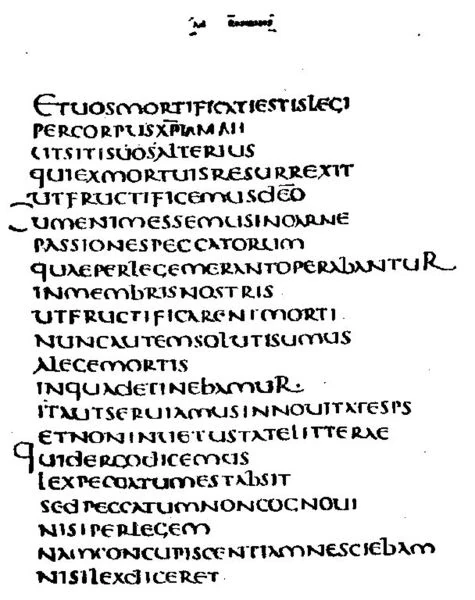 Ad Romanos
ETUOSMORTIFICATIESTISLEGI
UTSITISUOSALTERIUS
QUIEXMORTUISRESURREXIT
UTFRUCTIFICEMUSDĒO
UMENIMESSEMUSINCARNE
PASSIONESPECCATORUM
QUAEPERLEGEMERANTOPERABANTUR
INMEMBRISNOSTRIS
UTFRUCTIFICARENTMORTI
NUNCAUTEMSOLUTISUMUS
ALEGEMORTIS
INQUADETINEBAMUR.
ITAUTSERUIAMUSINNOUITATESPS
ETNONINUETUSTATELITTERAE
QUIDERGODICEMUS
LEXPECCATUMESTABSIT
SEDPECCATUMNONCOGNOUI
NISIPERLEGEM
NAMCONCUPISCENTIAMNESCIEBAM
NISILEXDICERET